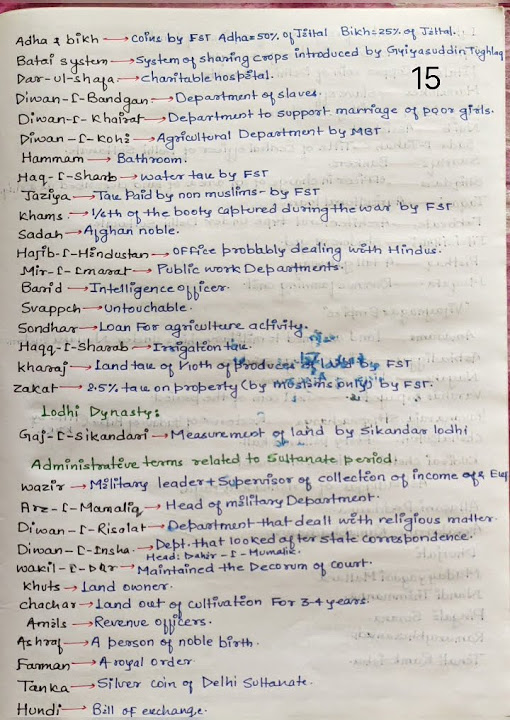 Adha & bikh → Coins by FST Adha=50% of Jettal Bikh=25% of Jettal.
Batai system → System of sharing crops introduced by Gyiyasuddin Tughlaq
Dar-ul-shafa → Charitable hospital.
15
Diwan-I-Bandgan → Department of slaves.
Diwan-I-Khairat → Department to support marriage of poor girls.
Diwan-I-Kohi → Agricultural Department by MBT
Hammam → Bathroom.
Haq-I-Sharb → water tax by FST
Jaziya → Tax Paid by non muslims- by FST
Khams → 1/5th of the booty captured during the war by FST
Sadah → Afghan noble.
Hajib-I-Hindustan → Office probbably dealing with Hindus.
Mir-I-Imarat → Public work Departments.
Barid → Intelligence officer.
Svappch → Untouchable.
Sondhar → Loan For agriculture activity.
Haqq-I-Sharab → Irrigation tax.
kharaj → Land tax of 1/10th of produces of land by FST
zakat → 2.5% tax on property (by moslims only) by FST.
Lodhi Dynasty:
Gaj-I-Sikandari → Measurement of land by Sikandar lodhi
Administrative terms related to Sultanate period.
wazir → Military leader + Supervisor of collection of income of &
Arz-I-Mamaliq → Head of military Department.
Diwan-I-Risalat → Department that deall with religious matter.
Diwan-I-Insha → Dept. that looked after state correspondence.
Head: Dabir-I-Mumalik.
wakil-I-Dar → Maintained the Decorum of court.
khuts → Land owner.
chachar → Land out of cultivation For 3-4 years.
Amils → Revenue officers.
Ashraf → A person of noble birth.
Farman → A royal order
Tanka → Silver coin of Delhi Sultanate.
Hundi → Bill of exchange.